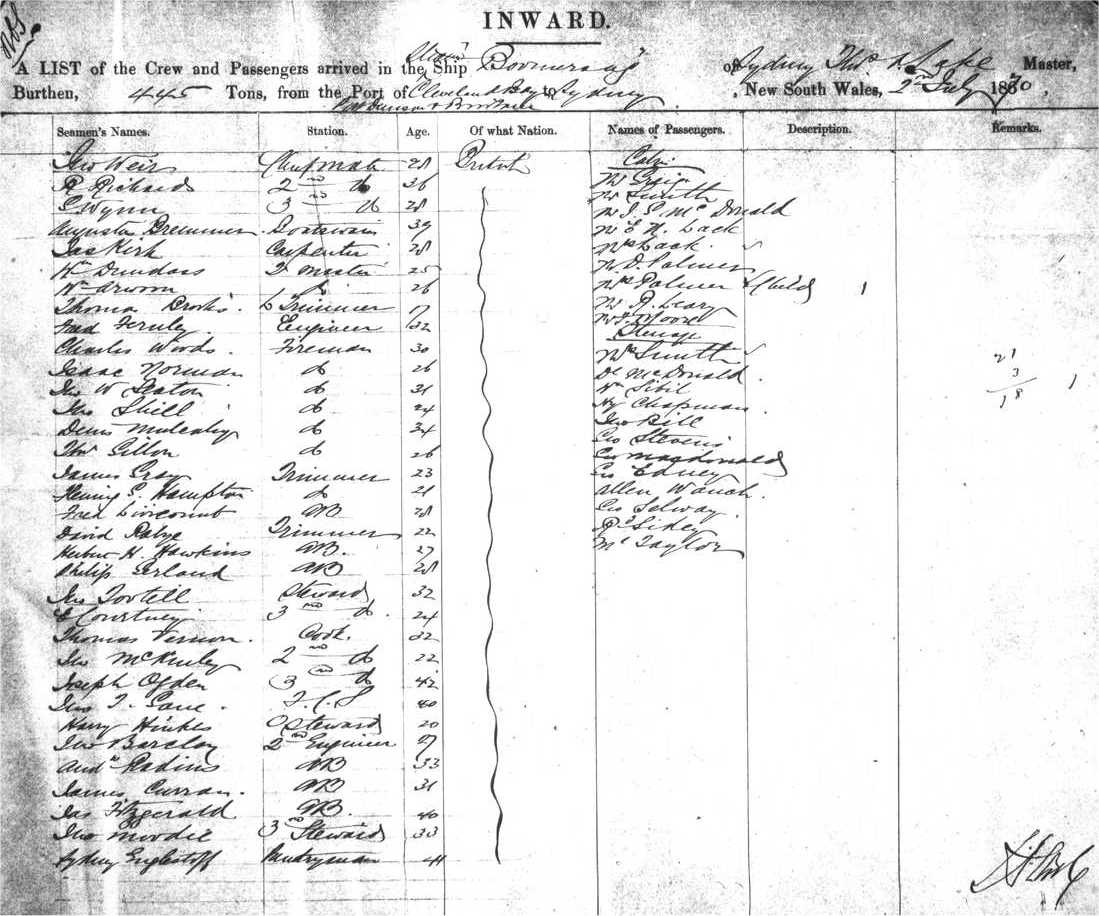 INWARD.
A LIST of the Crew and Passengers arrived in the Steam Ship Boomerang of Sydney Thos A Lake Master,
Burthen, 445 Tons, from the Port of Cleveland Bay to Sydney, New South Wales, 2nd July 1870,
Port Denison & Brisbane
Seamen's Names. Station. Age. Of what Nation. Names of Passengers. Description. Remarks.
Jno Weir Chief mate 28 British Cabin
R Richards 2nd do 36 Mr Craig
S Wynn 3nd do 28 Mr Smith
Augusta Bremmer Boatswain 39 Mr J. S. Mc Donald
Jas Kirk Carpenter 28 Mr E N. Lack
Wm Dundass 2 master 25 Mrs Lack
Wm 26 Mr D. Palmer
Thomas Brooks Trimmer 17 Mrs Palmer & Child 1
Fred Fernley Engineer 32 Mr R. Leary
Charles Woods Fireman 30 Moore
Isaac Norman do 26 Steerage
Jno W Seaton do 31 Mrs Smith
Shill do 24 Dl McDonald
Denis Mulcahy do 34 Wm Sibil
Thos Gillon do 26 Hy Chapman
James Gray Trimmer 23 Jno Bill
Henry G. Hampton do 21 Geo Stevens
Fred AB 28 Geo Macdonald
David Trimmer 22 Geo Edney
Herbert H. Hawkins AB. 27 Allen Wauch
Philip Gerland AB 28 Geo Selway
Jno Tootell Steward 32 Rd Sidey
E Courtney 3nd do 24 Mc Taylor
Thomas Vernon Cook. 32
Jno McKinley 2nd do 22
Joseph Ogden 3nd do 42
Jno T. Gane 40
Harry Hinkes Steward 20
Jno Barclay 2nd Engineer 27
Andw Rodins AB 33
James Curran AB 31
Jas Fitzgerald AB. 40
Jno Moodie 3nd Steward 33
Sydney Pantryman 41
21
3
18
1